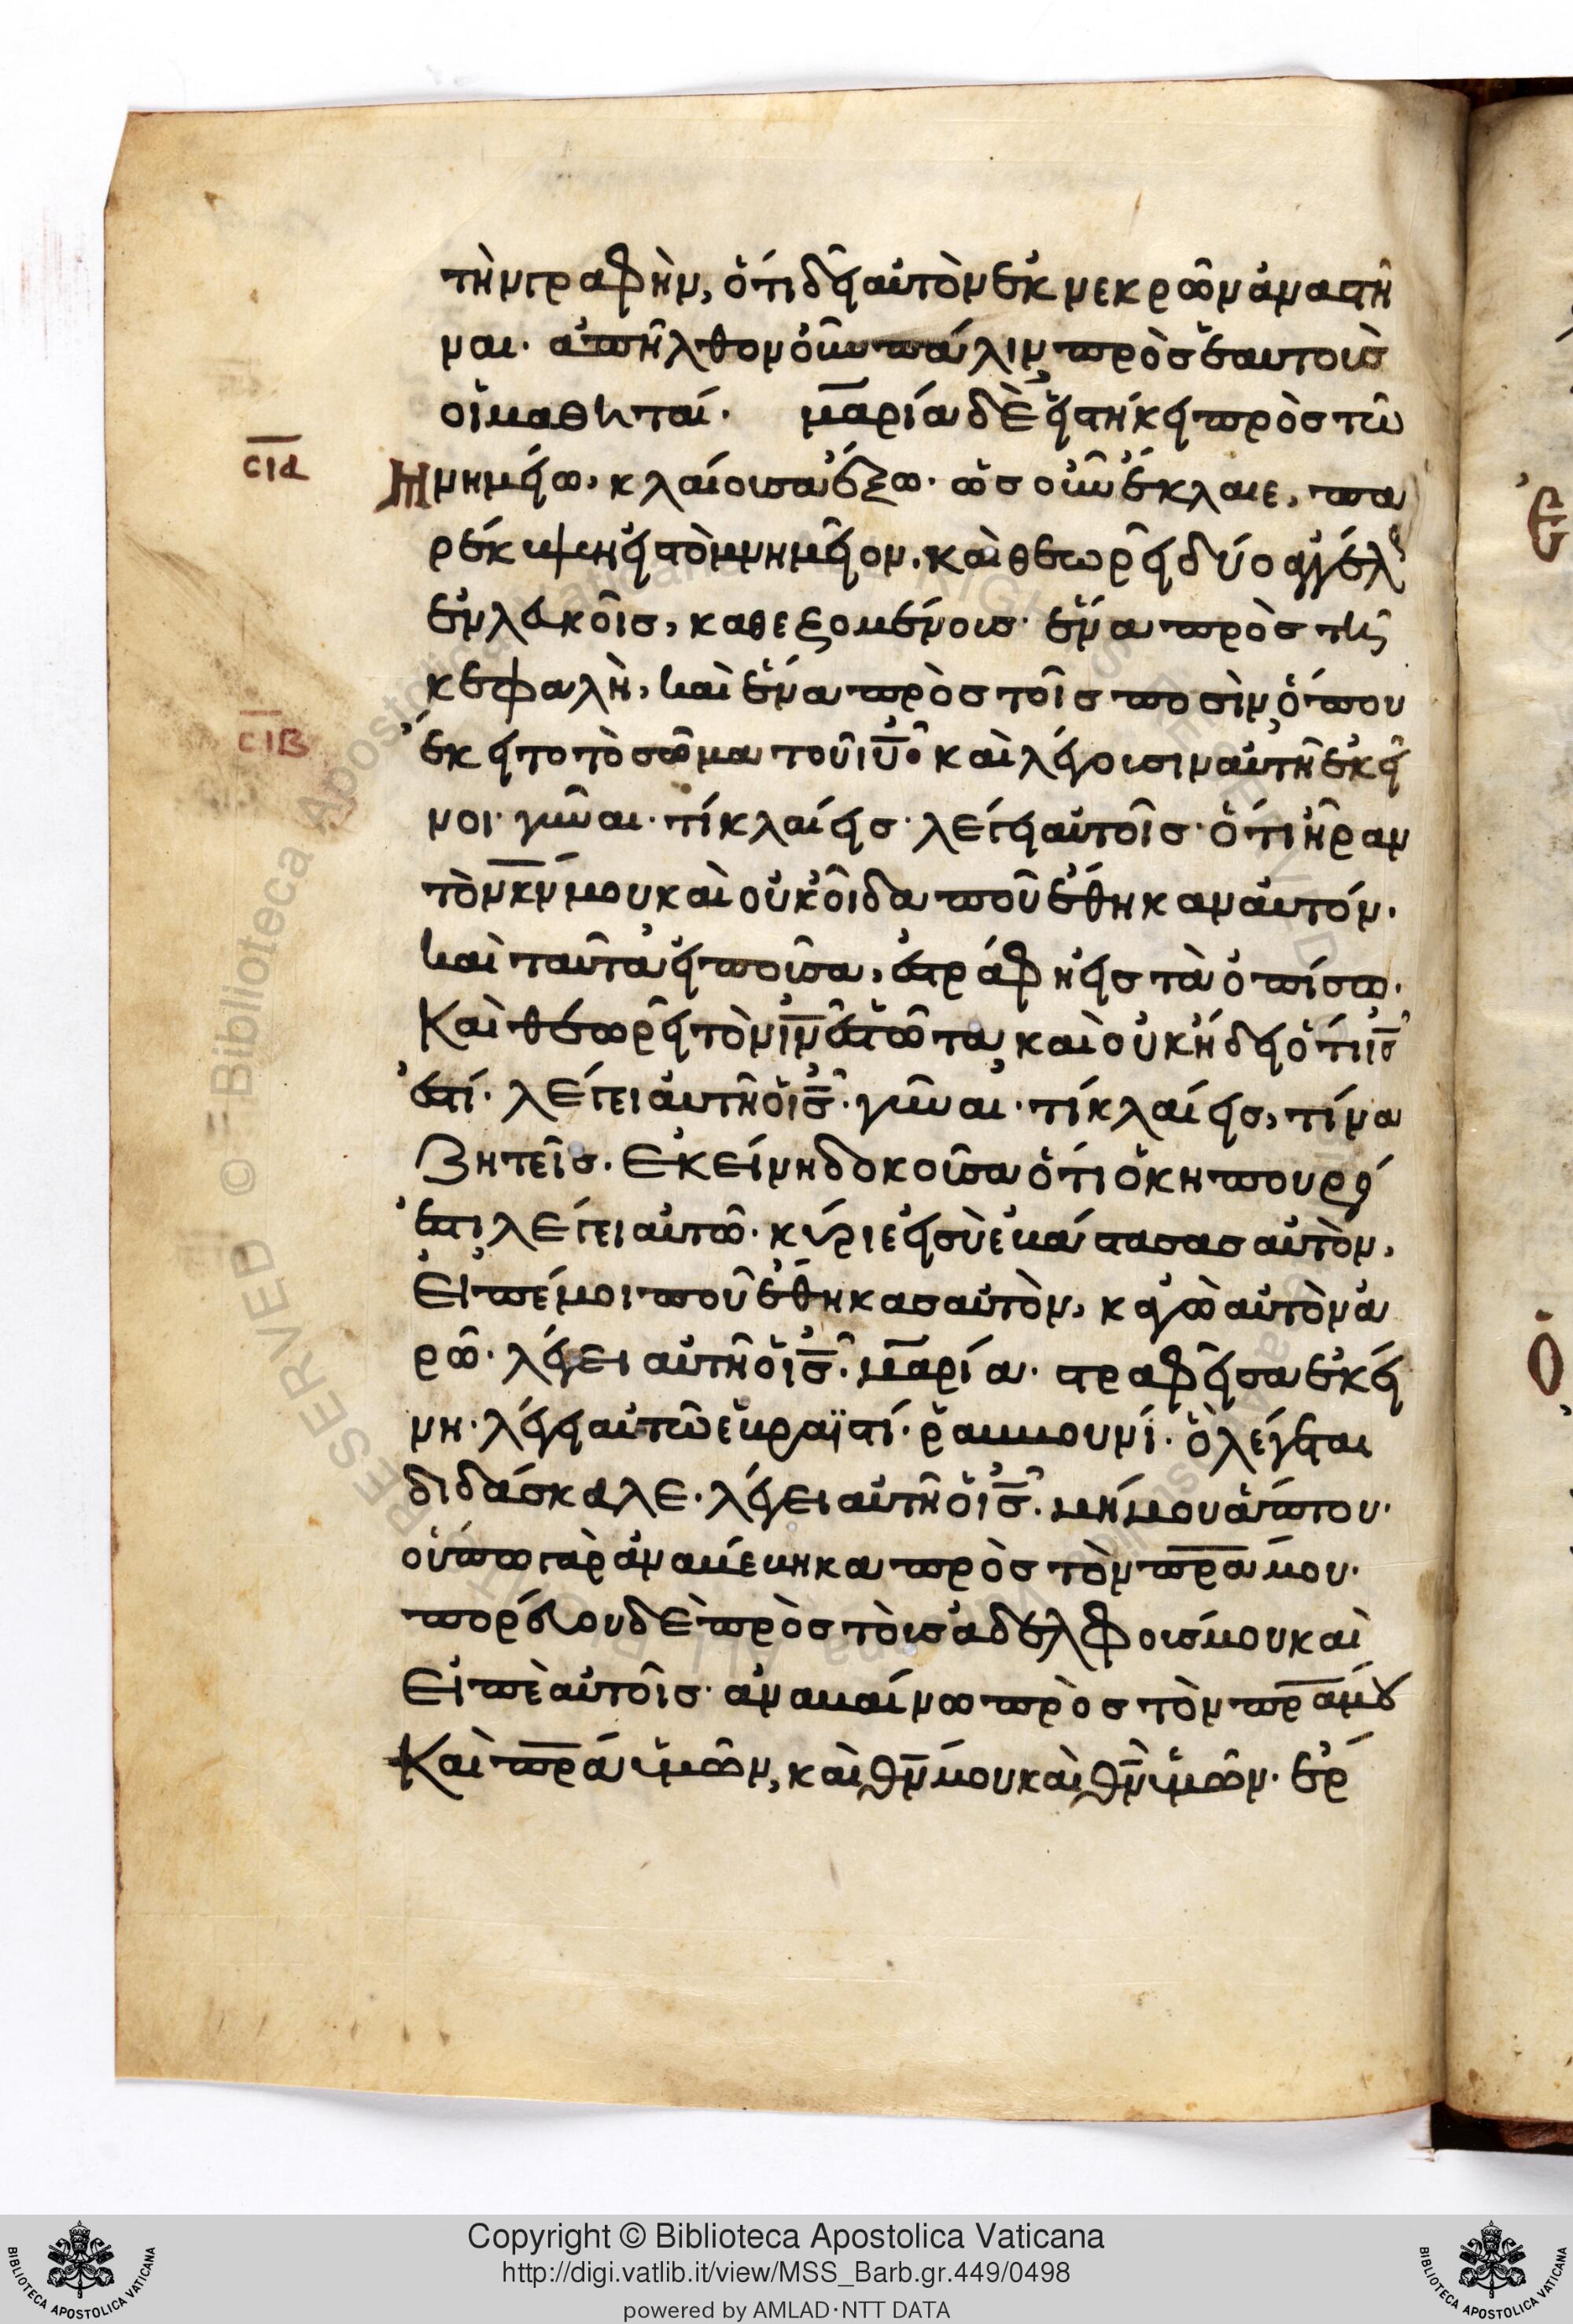 τὴν γραφὴν, ὅτι δεῖ αὐτὸν ἐκ νεκρῶν ἀναστῆ
ναι. ἀπῆλθον οὖν πάλιν πρὸς ἑαυτοὺς
οἱ μαθηταί. μαρία δὲ εἱστήκει πρὸς τῶ
σια
μνημείω, κλαίουσα ἔξω. ὡς οὖν ἔκλαιε, πα
ρέκυψεν εἰς τὸ μνημεῖον, καὶ θεωρεῖ δύο ἀγγέλ
ἐν λευκοῖς, καθεζομένους· ἕνα πρὸς τῆ
κεφαλῆ, καὶ ἕνα πρὸς τοῖς ποσὶν ὅπου
σιβ
ἔκειτο τὸ σῶμα τοῦ ιυ· καὶ λέγουσιν αὐτῆ ἐκεῖ
νοι· γύναι· τί κλαίεις· λέγει αὐτοῖς· ὅτι ἦραν
τὸν κν μου καὶ οὐκ οἶδα ποῦ ἔθηκαν αὐτόν.
καὶ ταῦτα εἰποῦσα, ἐστράφη εἰς τὰ ὀπίσω.
Καὶ θεωρεῖ τὸν ιν ἑστῶτα, καὶ οὐκ ἤδει ὅτι ις
ἐστί. λέγει αὐτῆ ὁ ις· γύναι· τί κλαίεις, τίνα
ζητεῖς. ἐκείνη δοκοῦσα ὅτι ὁ κηπουρό
ἐστι λέγει αὐτῶ· κύριε εἰ σὺ ἐβάστασας αὐτὸν,
εἰπέ μοι ποῦ ἔθηκας αὐτὸν, κἀγὼ αὐτὸν ἀ
ρῶ· λέγει αὐτῆ ὁ ις· μαρία· στραφεῖσα ἐκεί
νη· λέγει αὐτῶ ἑβραϊστί· ῥαββουνί· ὃ λέγεται
διδάσκαλε· λέγει αὐτῆ ὁ ις· μή μου ἅπτου·
οὔπω γὰρ ἀναβέβηκα πρὸς τὸν πρα μου·
πορεύου δὲ πρὸς τοὺς ἀδελφούς μου καὶ
εἰπὲ αὐτοῖς· ἀναβαίνω πρὸς τὸν πρα μου
Καὶ πρα ὑμῶν, καὶ θν μου καὶ θν ὑμῶν· ἔρ
Copyright © Biblioteca Apostolica Vaticana
http://digi.vatlib.it/view/MSS_Barb.gr.449/0498
powered by AMLAD·NTT DATA
BIBLIOTECA APOSTOLICA VATICANA
BIBLIOTECA APOSTOLICA VATICANA